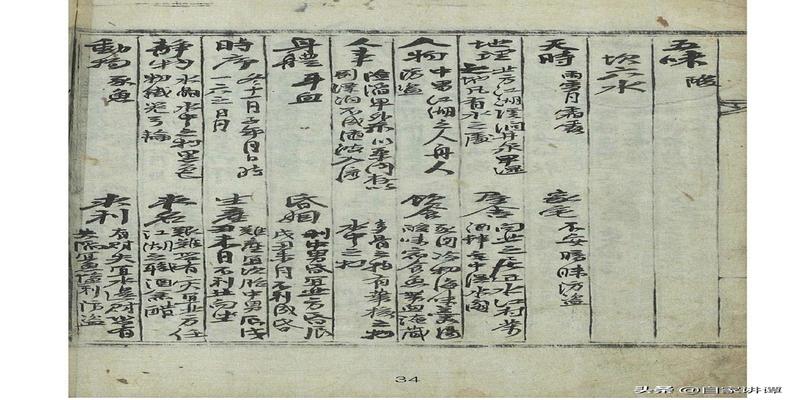 五味 酸
坎六水
天時 雨雪月霜露
家宅 不安暗昧防盗
地理 北方江湖溪澗井泉卑濕
之地凡有水之處
居舍 向北之居近水江村茅
酒肆宅中濕水閣
人物 中男江湖之人舟人
防盗
飲食 豕肉冷物海味羹湯
酸味宿食魚帶血淹藏
人事 險陷卑外示以柔內
漂泊不成隨波入流
多骨之物有帶核之物
水中之物
身體 耳血
婚姻 利中男宜北方婚辰
戌丑未月不利成婚
時序 冬十一月子年月日時
一六之月日
生產 難產宜次胎中男辰戌
丑未日不利
靜物 水中之物黑色
物
求名 艱難宜北方任
江湖之職酒
動物 豕魚
求利 有宜水邊財
失宜魚塩利防盗
34
头条 @自家讲谭